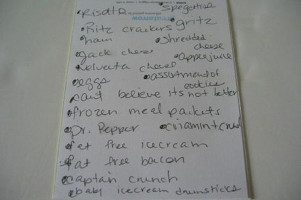 •Risotto •spagettie
•Ritz crackers •gritz
•ham •shredded cheese
•jack cheese •apple juice
•Velveeta cheese
•eggs •assortment of cookies
•cant believe its not butter
•frozen meal packets
•Dr. Pepper •cinamint crun
•fat free icecream
•fat free bacon
•captain crunch
•baby icecream drumsticks